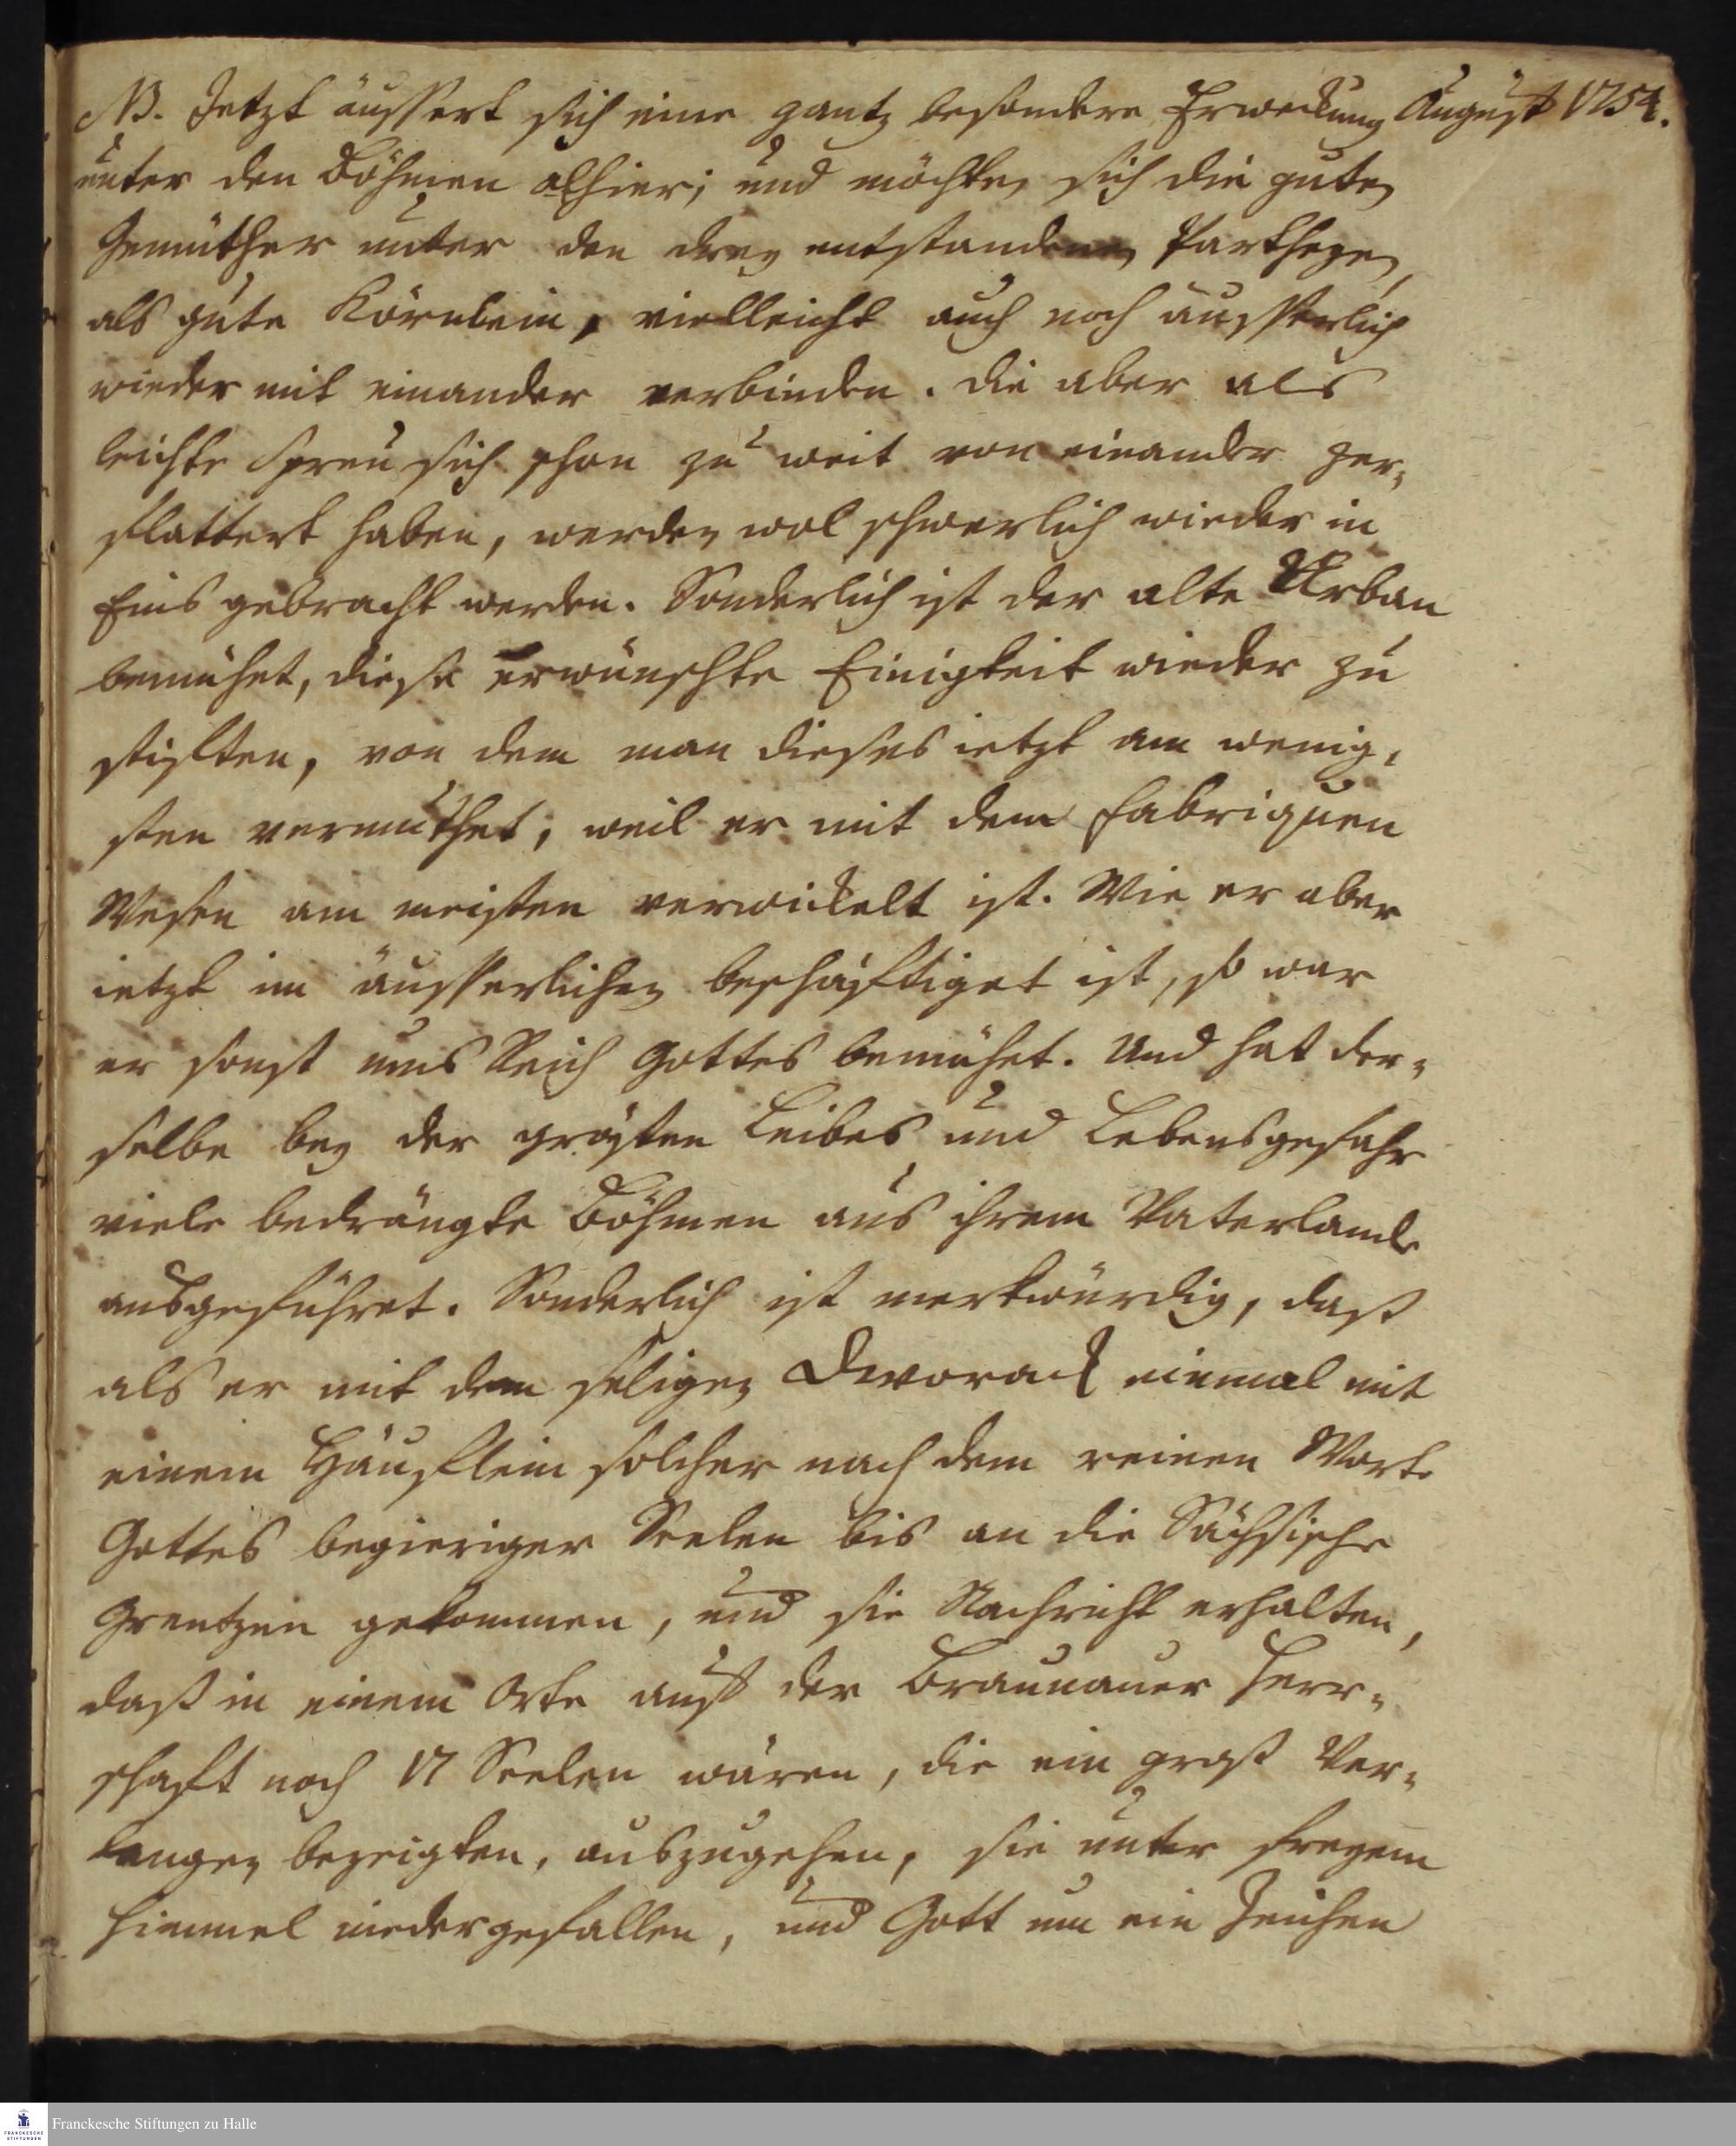 NB. Jetzt äussert sich eine gantz besondere Erweckung August 1754.
unter den Böhmen alhier; und möchten sich die guten
Gemüther unter den drey entstandenen Partheyen,
als gute Körnlein, vielleicht auch noch äusserlich
wieder mit einander verbinden. Die aber als
leichte Spreu sich schon zu weit von einander zer-
flattert haben, werden wol schwerlich wieder in
Eins gebracht werden. Sonderlich ist der alte Urban
bemühet, diese erwünschte Einigkeit wieder zu
stifften, von dem man dieses ietzt am wenig-
sten vermuthet, weil er mit dem Fabriquen
Wesen am meisten verwickelt ist. Wie er aber
ietzt im äusserlichen beschäfftiget ist, so war
er sonst ums Reich Gottes bemühet. Und hat der-
selbe bey der grösten Leibes und Lebensgefahr
viele bedrängte Böhmen aus ihrem Vaterlande
ausgeführet. Sonderlich ist merkwürdig, daß
als er mit dem seligen Dworack einmal mit
einem Häufflein solcher nach dem reinen Worte
Gottes begieriger Seelen bis an die Sächsische
Grentzen gekommen, und sie Nachricht erhalten,
daß in einem Orte auf der Braunauer Herr-
schafft noch 17 Seelen wären, die ein groß Ver-
langen bezeigten, auszugehen, sie unter freyem
Himmel niedergefallen, und Gott um ein Zeichen
Franckesche Stiftungen zu Halle
FRANCKESCHE
STIFTUNGEN